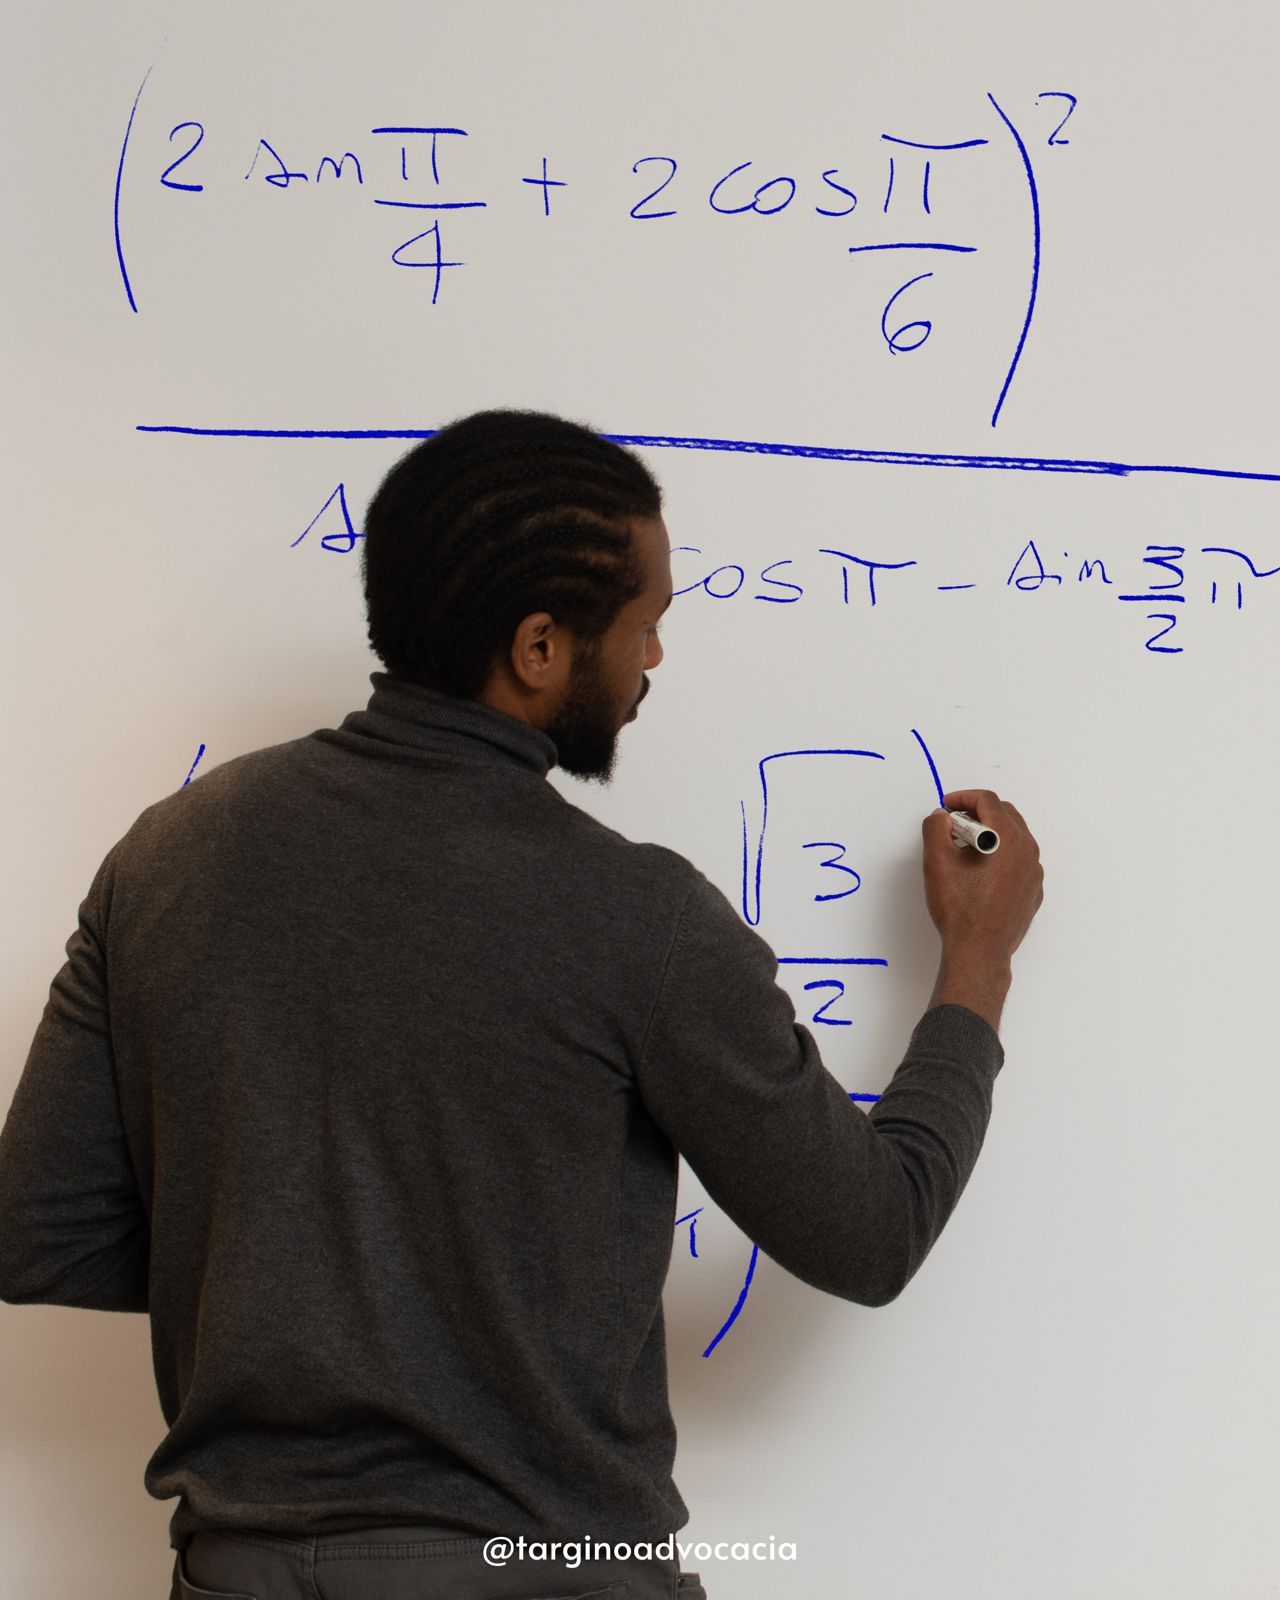 (2 sin π/4 + 2 cos π/6)²
cos π - sin 3/2 π
√3
2
@targinoadvocacia